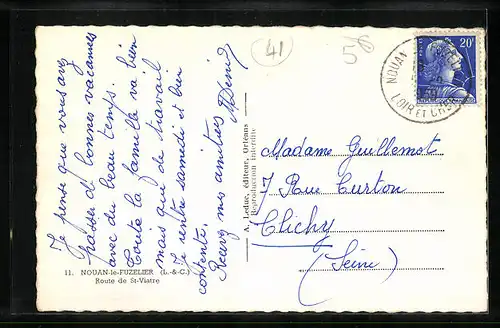 Je pense que vous avez
passer d. bonnes vacances
avec du beau temps.
Toute la famille va bien
mais que de travail
Je rentre samedi et bin
contente.
Recevez mes amities
11. NOUAN-le-FUZELIER (L.-&-C.)
Route de St-Viatre
A. Leduc, éditeur, Orléans
Reproduction interdite
41
58
20F
NOUAN
LOIR ET CHER
Madame Guillemot
7 Rue Curton
Clichy
(Seine)